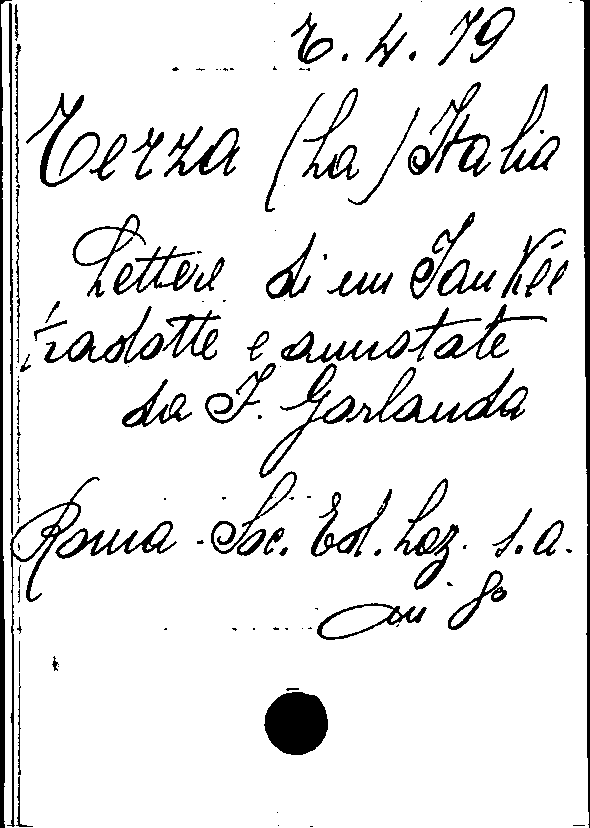 T. 4. 79
Terza (La) Italia
Lettere di un Yankée
tradotte e annotate
da F. Garlanda
Roma. Soc. Ed. Laz. s.a.
in 8º